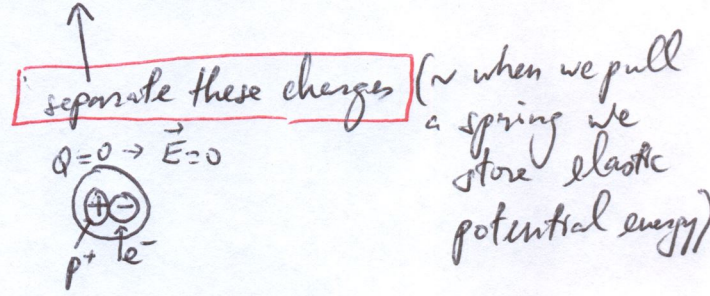 separate these charges (~ when we pull
a spring we
store elastic
potential energy)
Q=0 → E⃗=0
+ −
p⁺ e⁻